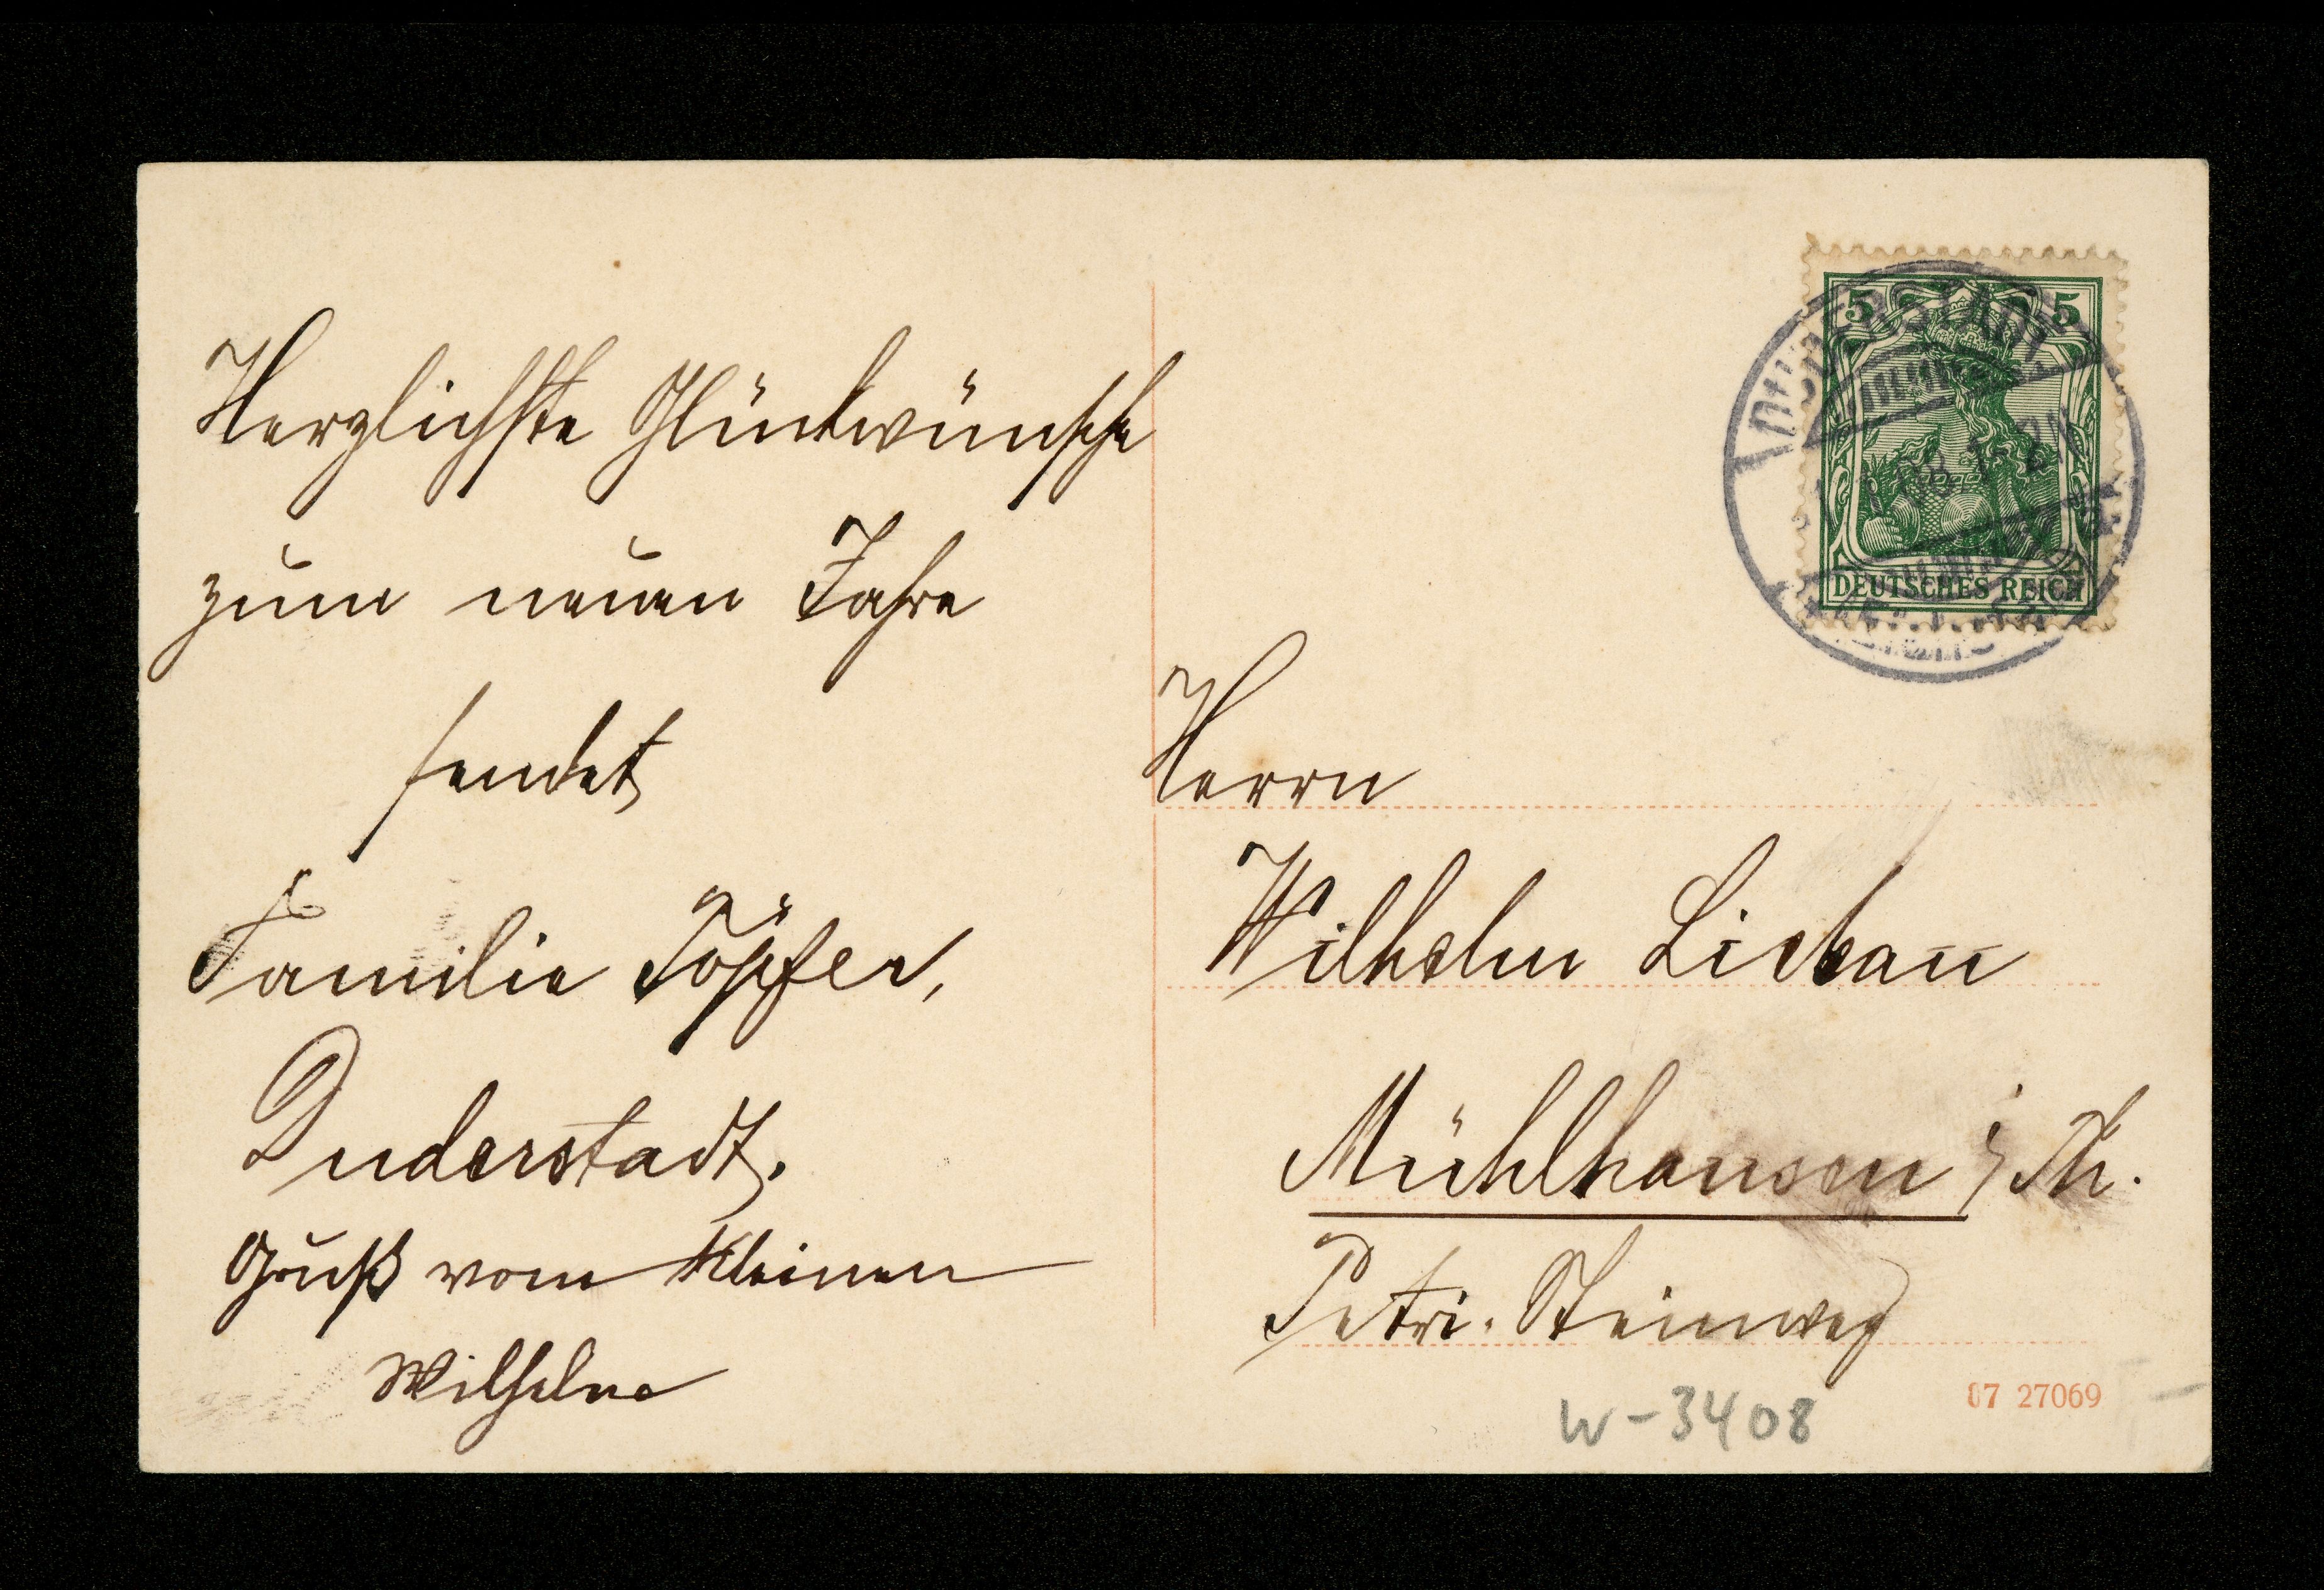 Herzlichste Glückwünsche
zum neuen Jahre
sendet
Familie Töpfer,
Duderstadt.
Gruß vom kleinen
Wilhelm
5 5
DUDERSTADT
DEUTSCHES REICH
Herrn
Wilhelm Liebau
Mühlhausen i/Th.
Petri. Steinweg
W-3408
07 27069